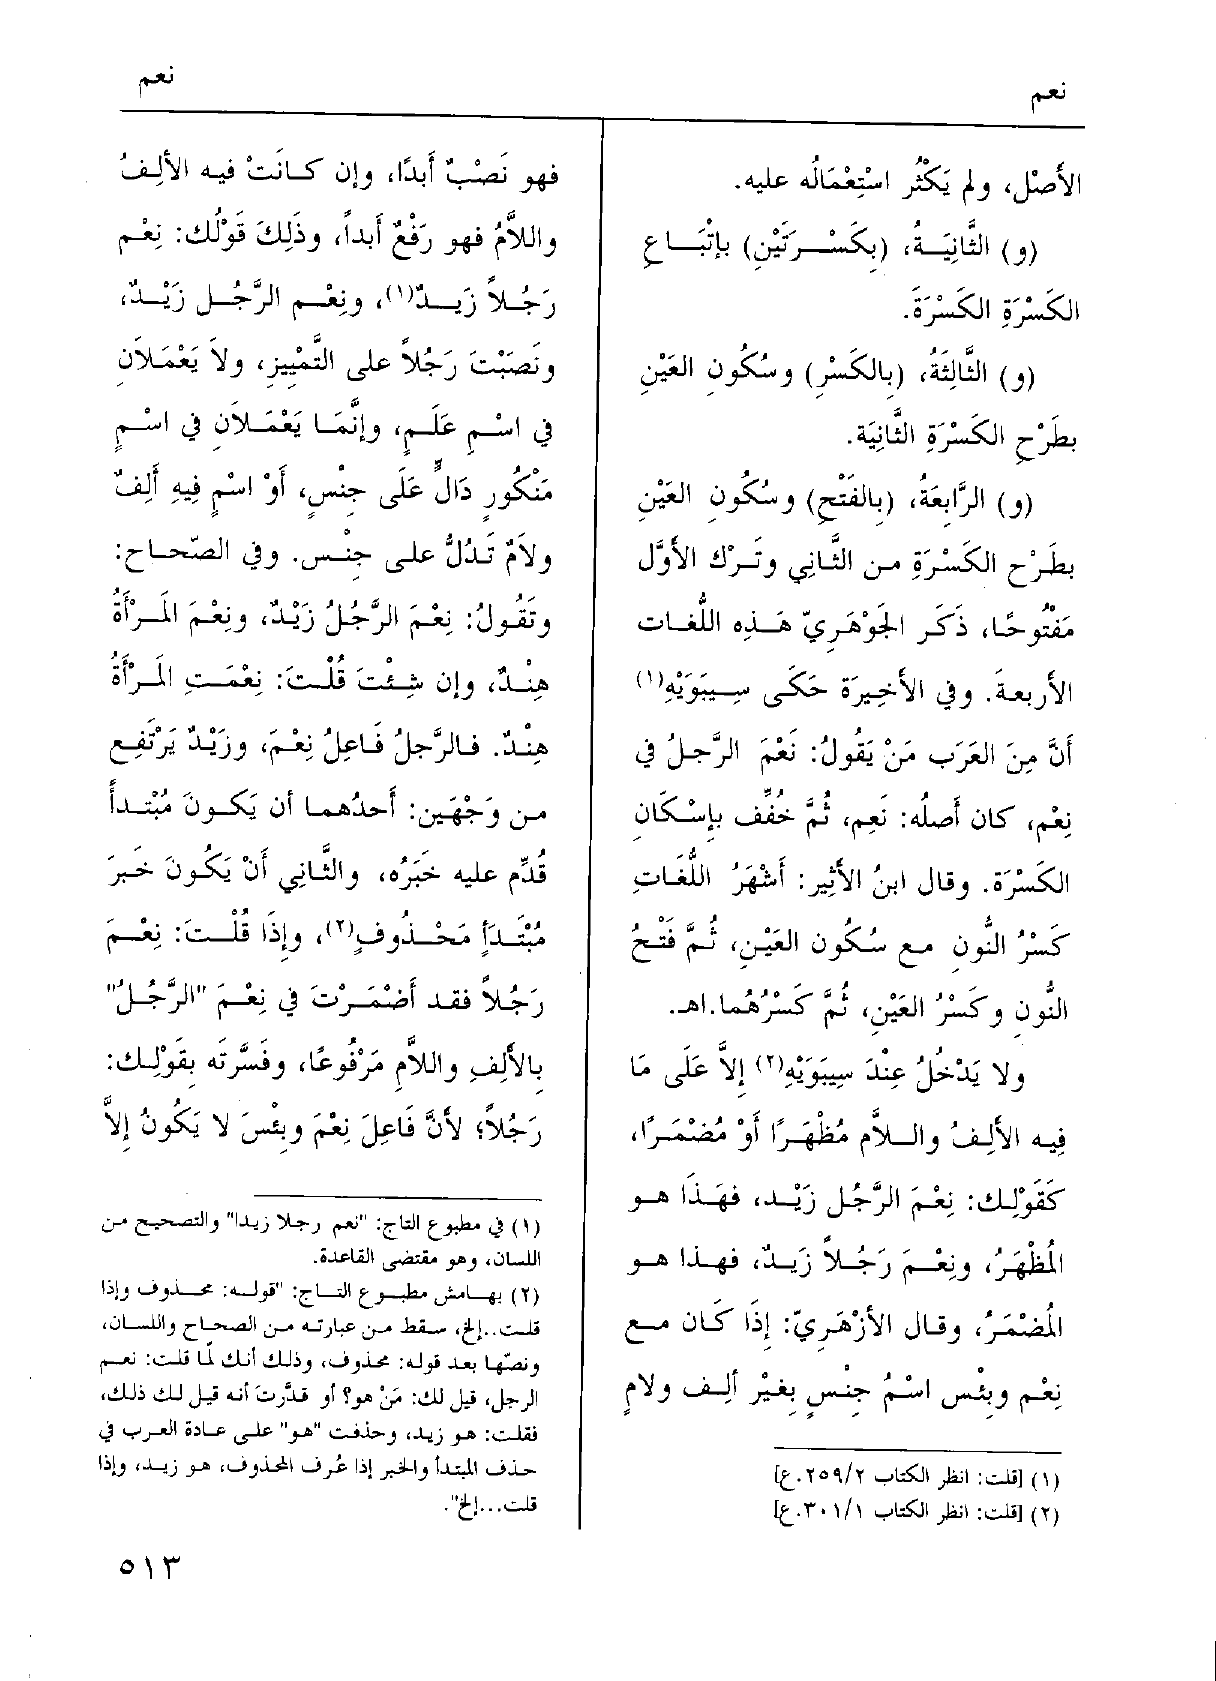 نعم
نعم
الأصْل، ولم يَكْثُر اسْتِعْمَالُه عليه.
(و) الثَّانِيَــةُ، (بِكَسْــرَتَيْنِ) بإتْبَــاعِ
الكَسْرَةِ الكَسْرَةَ.
(و) الثَّالِثَةُ، (بالكَسْرِ) وسُكُونِ العَيْنِ
بطَرْحِ الكَسْرَةِ الثَّانِيَة.
(و) الرَّابِعَةُ، (بالفَتْحِ) وسُكُونِ العَيْنِ
بطَرْحِ الكَسْرَةِ من الثَّانِي وتَرْك الأَوَّل
مَفْتُوحًا، ذَكَر الجَوْهَرِيّ هَذِه اللُّغَات
الأربعةَ. وفي الأخِيرَة حَكَى سِيبَوَيْهِ(١)
أنَّ مِنَ العَرَب مَنْ يَقُولُ: نَعْمَ الرَّجلُ في
نِعْم، كان أصلُه: نَعِم، ثُمَّ خُفِّف بإسْكَان
الكَسْرَة. وقال ابنُ الأَثِير: أَشْهَرُ اللُّغَاتِ
كَسْرُ النُّون مع سُكُون العَيْنِ، ثُمَّ فَتْحُ
النُّونِ وكَسْرُ العَيْنِ، ثُمَّ كَسْرُهُما.اهـ.
ولا يَدْخُلُ عِنْدَ سِيبَوَيْهِ(٢) إلاَّ عَلَى مَا
فِيه الأَلِفُ واللاَّم مُظْهَرًا أوْ مُضْمَرًا،
كَقَوْلِك: نِعْمَ الرَّجُل زَيْد، فهَذَا هو
المُظْهَرُ، ونِعْمَ رَجُلاً زَيدٌ، فهذا هو
المُضْمَرُ، وقال الأزْهَرِيّ: إذَا كَان مع
نِعْم وبِئْس اسْمُ جِنسٍ بغَيْرِ ألِف ولامٍ
(١) [قلت: انظر الكتاب ٢٥٩/٢.ع]
(٢) [قلت: انظر الكتاب ٣٠١/١.ع]
فهو نَصْبٌ أبدًا، وإن كَانَتْ فيه الأَلِفُ
واللاَّمُ فهو رَفْعٌ أبداً، وذَلِكَ قَوْلُك: نِعْم
رَجُلاً زَيدٌ(١)، ونِعْم الرَّجُل زَيْدٌ،
ونَصَبْتَ رَجُلاً على التَّمْيِيزِ، ولا يَعْمَلاَنِ
في اسْم عَلَمٍ، وإنَّمَا يَعْمَلاَنِ في اسْمٍ
مَنْكُورٍ دَالٍّ عَلَى جِنسٍ، أوْ اسْمٍ فِيهِ أَلِفٌ
ولاَمٌ تَدُلُّ على جِنْس. وفي الصّحَاح:
وتَقُولُ: نِعْمَ الرَّجُلُ زَيْدٌ، ونِعْمَ المَرْأَةُ
هِنْدٌ، وإن شِئْتَ قُلْتَ: نِعْمَتِ المَرْأَةُ
هِنْدٌ. فالرَّجلُ فَاعِلُ نِعْمَ، وزَيْدٌ يَرْتَفِع
من وَجْهَينِ: أحدُهما أن يَكُونَ مُبْتدأً
قُدِّم عليه خَبَرُه، والثَّانِي أنْ يَكُونَ خَبَرَ
مُبْتَدأٍ مَحْذُوفٍ(٢)، وإذَا قُلْتَ: نِعْمَ
رَجُلاً فقد أَضْمَرْتَ في نِعْمَ "الرَّجُلُ"
بالأَلِفِ واللاَّمِ مَرْفُوعًا، وفَسَّرْتَه بقَوْلِك:
رَجُلاً؛ لأَنَّ فَاعِلَ نِعْمَ وبِئْسَ لا يَكُونُ إلاَّ
(١) في مطبوع التاج: "نعم رجلا زيدا" والتصحيح من
اللسان، وهو مقتضى القاعدة.
(٢) بهامش مطبوع التاج: "قوله: محذوف وإذا
قلت..إلخ، سقط من عبارته من الصحاح واللسان،
ونصّها بعد قوله: محذوف، وذلك أنك لمّا قلت: نعم
الرجل، قيل لك: مَنْ هو؟ أو قدَّرتَ أنه قيل لك ذلك،
فقلت: هو زيد، وحذفت "هو" على عادة العرب في
حذف المبتدأ والخبر إذا عُرف المحذوف، هو زيد، وإذا
قلت...إلخ".
٥١٣